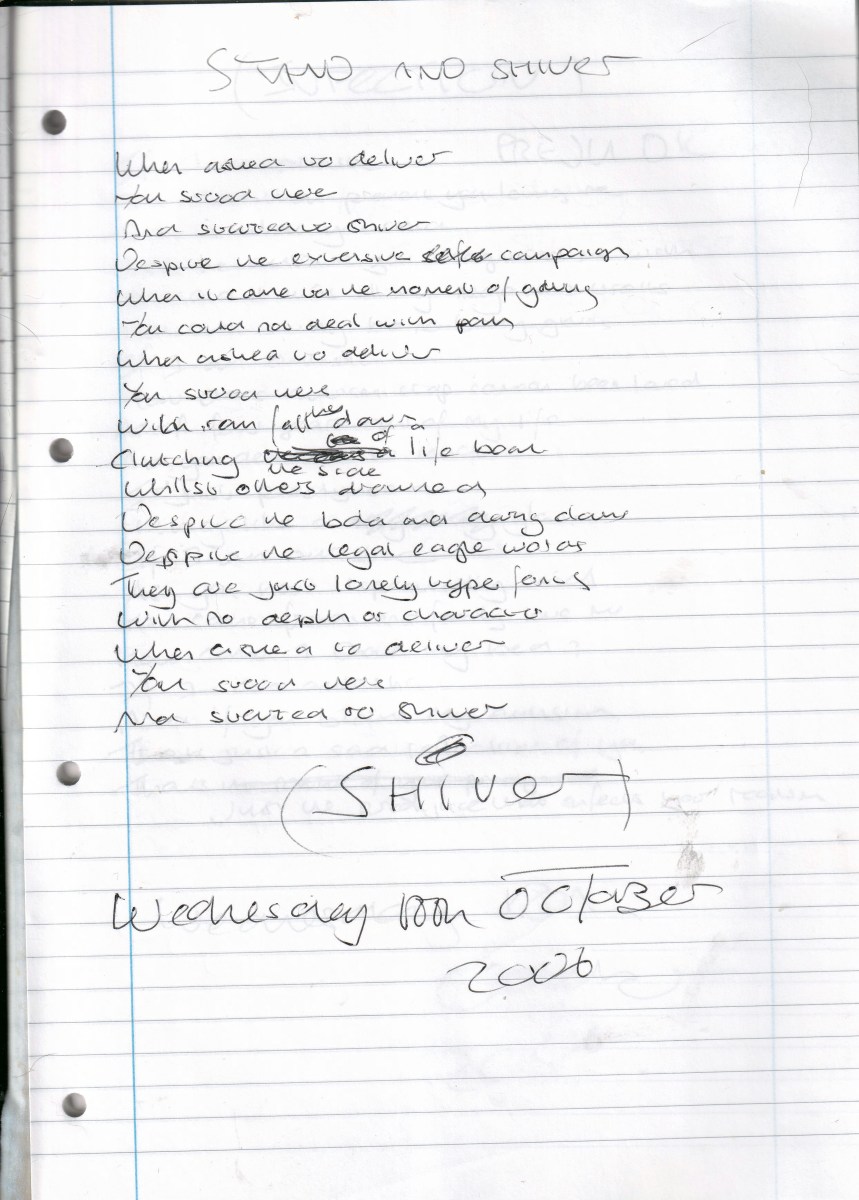 STAND AND SHIVER
When asked to deliver
You stood there
And started to shiver
Despite the extensive sales campaign
When it came to the moment of giving
You could not deal with pain
When asked to deliver
You stood there
With rain falling down
Clutching the side of a life boat
Whillst others drowned
Despite the bold and daring
Despite the legal eagle words
They are just lonely type fonts
With no depth or character
When asked to deliver
You stood there
And started to shiver
(SHIVER)
Wednesday October
2006